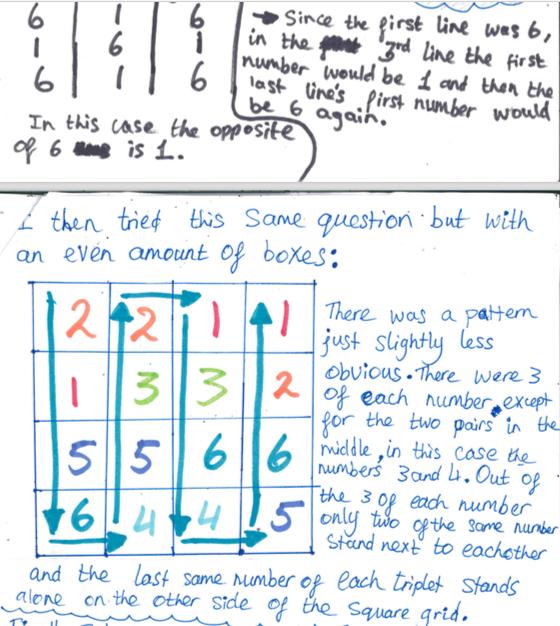 6 | 1 | 6
1 | 6 | 1
6 | 1 | 6
In this case the opposite
of 6 is 1.
Since the first line was 6,
in the 3rd line the first
number would be 1 and then the
last line's first number would
be 6 again.
I then tried this same question but with
an even amount of boxes:
2 2 1 1
1 3 3 2
5 5 6 6
6 4 4 5
There was a pattern
just slightly less
obvious. There were 3
of each number, except
for the two pairs in the
middle, in this case the
numbers 3 and 4. Out of
the 3 of each number
only two of the same number
stand next to eachother
and the last same number of each triplet stands
alone on the other side of the square grid.